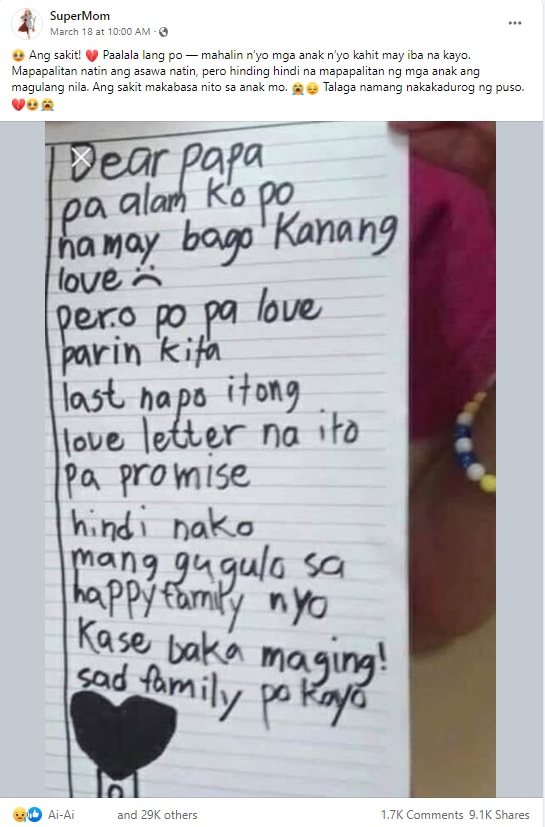 SuperMom
March 18 at 10:00 AM ·
🥹 Ang sakit! 💔 Paalala lang po — mahalin n'yo mga anak n'yo kahit may iba na kayo.
Mapapalitan natin ang asawa natin, pero hinding hindi na mapapalitan ng mga anak ang
magulang nila. Ang sakit makabasa nito sa anak mo. 😭😔 Talaga namang nakakadurog ng puso.
💔🥹😭
Dear papa
pa alam ko po
na may bago kanang
love
pero po pa love
parin kita
last napo itong
love letter na ito
pa promise
hindi nako
mang gugulo sa
happy family nyo
kase baka maging!
sad family po kayo
Ai-Ai and 29K others
1.7K Comments 9.1K Shares